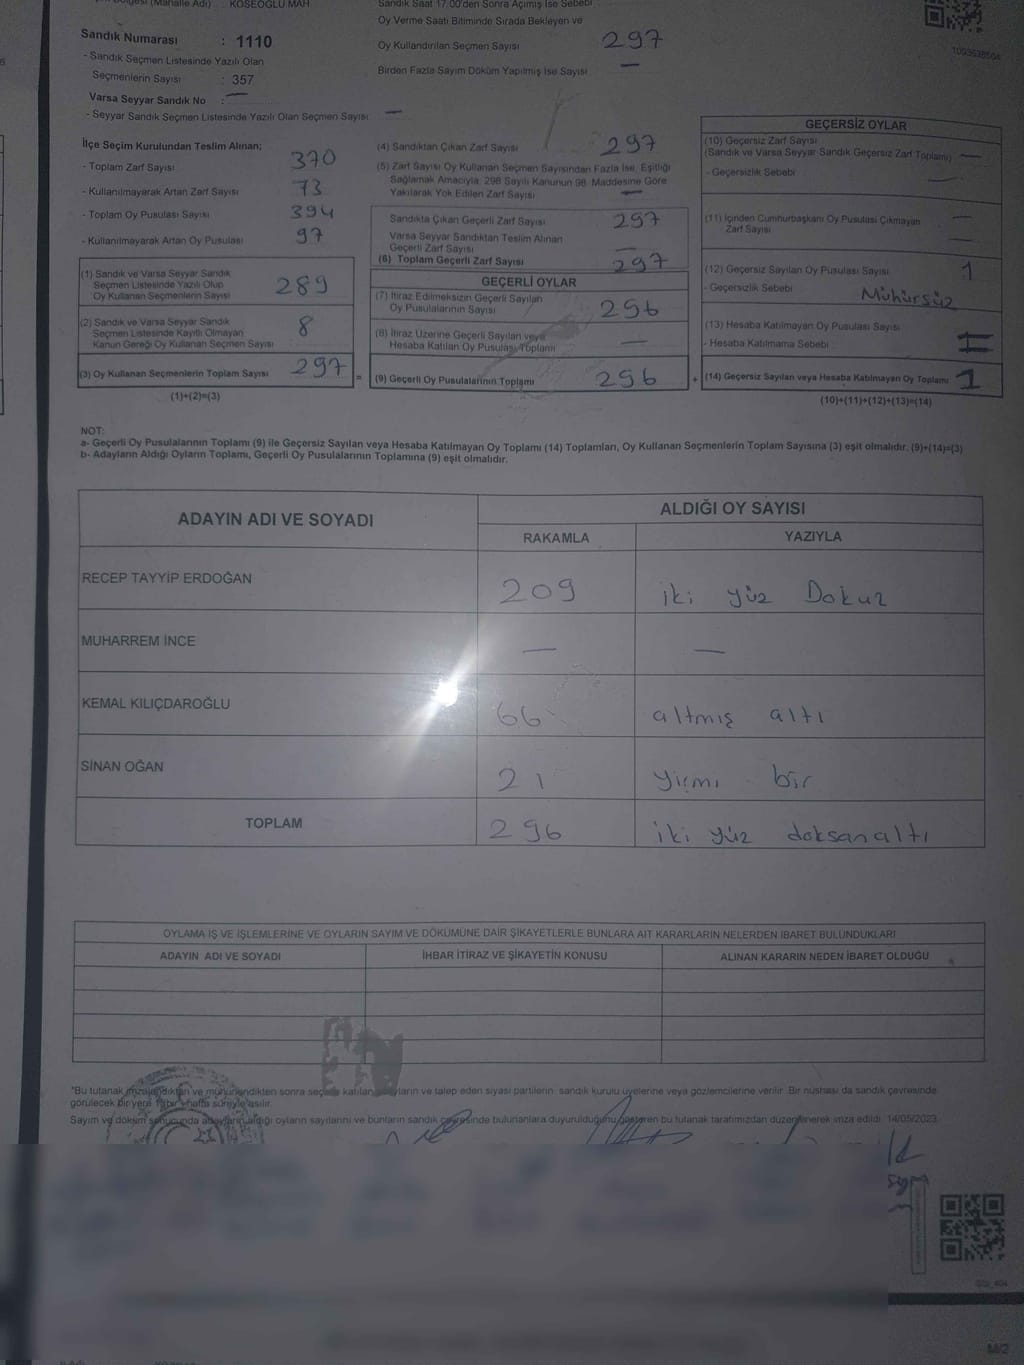 (Mahalle Adı) KÖSEOĞLU MAH
Sandık Saat 17.00'den Sonra Açılmış İse Sebebi
Oy Verme Saati Bitiminde Sırada Bekleyen ve
Oy Kullandırılan Seçmen Sayısı 297
Birden Fazla Sayım Döküm Yapılmış İse Sayısı —
Sandık Numarası : 1110
- Sandık Seçmen Listesinde Yazılı Olan
Seçmenlerin Sayısı : 357
Varsa Seyyar Sandık No : —
- Seyyar Sandık Seçmen Listesinde Yazılı Olan Seçmen Sayısı —
İlçe Seçim Kurulundan Teslim Alınan;
- Toplam Zarf Sayısı 370
- Kullanılmayarak Artan Zarf Sayısı 73
- Toplam Oy Pusulası Sayısı 394
- Kullanılmayarak Artan Oy Pusulası 97
(1) Sandık ve Varsa Seyyar Sandık
Seçmen Listesinde Yazılı Olup
Oy Kullanan Seçmenlerin Sayısı 289
(2) Sandık ve Varsa Seyyar Sandık
Seçmen Listesinde Kayıtlı Olmayan
Kanun Gereği Oy Kullanan Seçmen Sayısı 8
(3) Oy Kullanan Seçmenlerin Toplam Sayısı 297
(1)+(2)=(3)
(4) Sandıktan Çıkan Zarf Sayısı 297
(5) Zarf Sayısı Oy Kullanan Seçmen Sayısından Fazla İse, Eşitliği
Sağlamak Amacıyla; 298 Sayılı Kanunun 98. Maddesine Göre
Yakılarak Yok Edilen Zarf Sayısı —
Sandıkta Çıkan Geçerli Zarf Sayısı 297
Varsa Seyyar Sandıktan Teslim Alınan
Geçerli Zarf Sayısı —
(6) Toplam Geçerli Zarf Sayısı 297
GEÇERLİ OYLAR
(7) İtiraz Edilmeksizin Geçerli Sayılan
Oy Pusulalarının Sayısı 296
(8) İtiraz Üzerine Geçerli Sayılan veya
Hesaba Katılan Oy Pusulası Toplamı —
= (9) Geçerli Oy Pusulalarının Toplamı 296 +
GEÇERSİZ OYLAR
(10) Geçersiz Zarf Sayısı
(Sandık ve Varsa Seyyar Sandık Geçersiz Zarf Toplamı) —
- Geçersizlik Sebebi —
(11) İçinden Cumhurbaşkanı Oy Pusulası Çıkmayan —
Zarf Sayısı —
(12) Geçersiz Sayılan Oy Pusulası Sayısı 1
- Geçersizlik Sebebi Mühürsüz
(13) Hesaba Katılmayan Oy Pusulası Sayısı
- Hesaba Katılmama Sebebi
(14) Geçersiz Sayılan veya Hesaba Katılmayan Oy Toplamı 1
(10)+(11)+(12)+(13)=(14)
NOT:
a- Geçerli Oy Pusulalarının Toplamı (9) ile Geçersiz Sayılan veya Hesaba Katılmayan Oy Toplamı (14) Toplamları, Oy Kullanan Seçmenlerin Toplam Sayısına (3) eşit olmalıdır. (9)+(14)=(3)
b- Adayların Aldığı Oyların Toplamı, Geçerli Oy Pusulalarının Toplamına (9) eşit olmalıdır.
ADAYIN ADI VE SOYADI ALDIĞI OY SAYISI
RAKAMLA YAZIYLA
RECEP TAYYİP ERDOĞAN 209 iki yüz Dokuz
MUHARREM İNCE — —
KEMAL KILIÇDAROĞLU 66 altmış altı
SİNAN OĞAN 21 yirmi bir
TOPLAM 296 iki yüz doksan altı
OYLAMA İŞ VE İŞLEMLERİNE VE OYLARIN SAYIM VE DÖKÜMÜNE DAİR ŞİKAYETLERLE BUNLARA AİT KARARLARIN NELERDEN İBARET BULUNDUKLARI
ADAYIN ADI VE SOYADI İHBAR İTİRAZ VE ŞİKAYETİN KONUSU ALINAN KARARIN NEDEN İBARET OLDUĞU
*Bu tutanak imzalandıktan ve mühürlendikten sonra seçime katılan ve talep eden siyasi partilerin sandık kurulu üyelerine veya gözlemcilerine verilir. Bir nüshası da sandık çevresinde
görülecek bir yere bir hafta süreyle asılır.
Sayım ve döküm sonucunda adayların aldığı oyların sayılarını ve bunların sandık çevresinde bulunanlara duyurulduğunu gösteren bu tutanak tarafımızdan düzenlenerek imza edildi. 14/05/2023
M/2